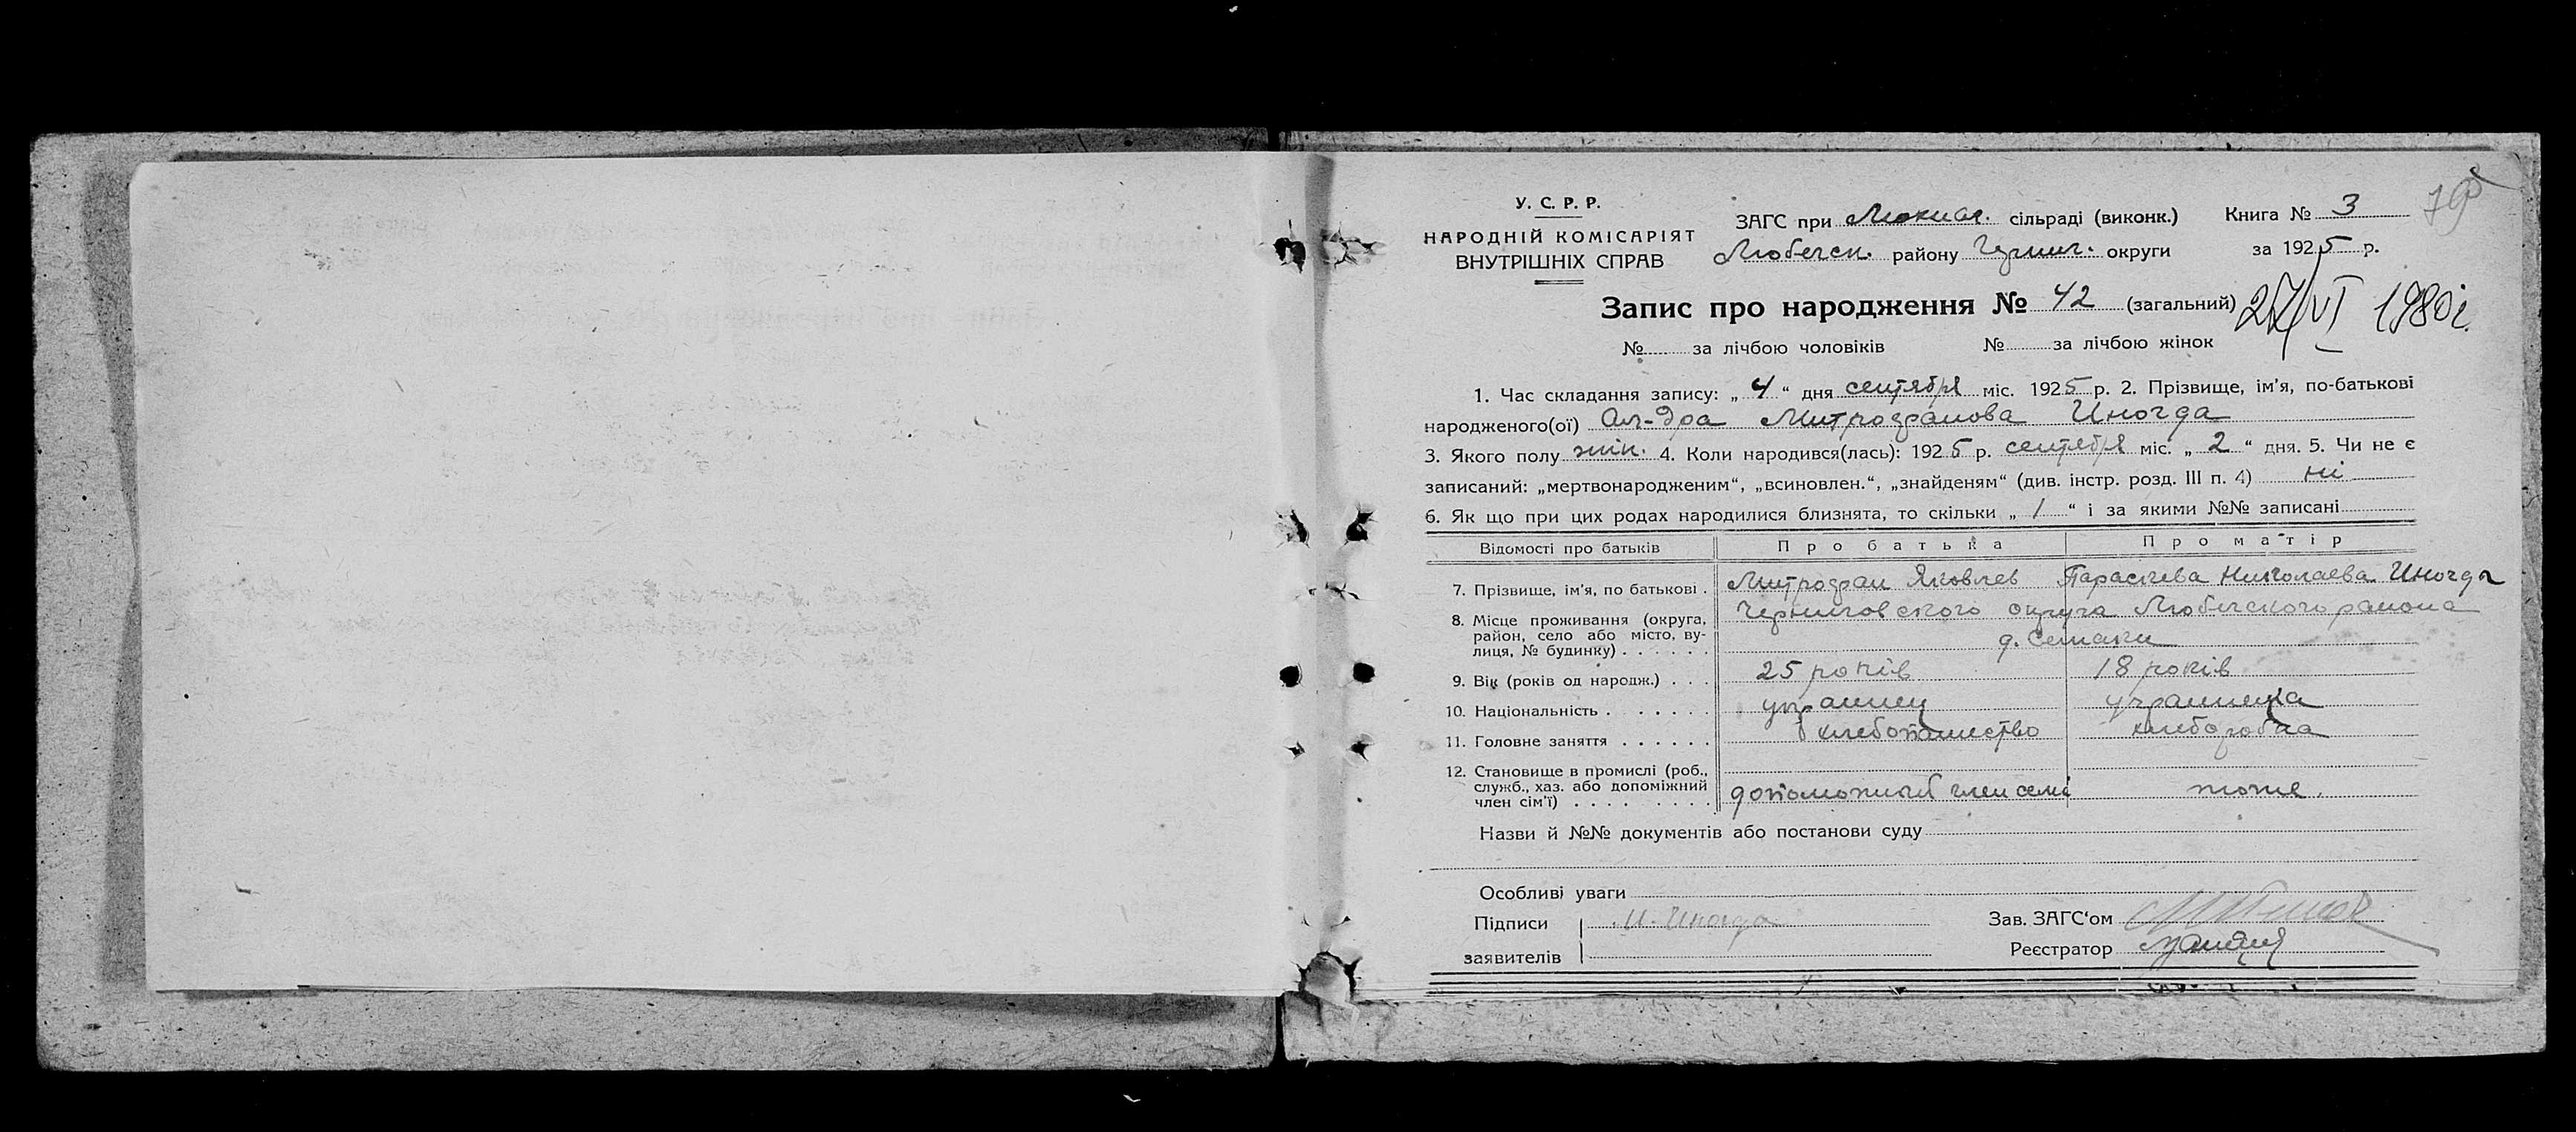 У. С. Р. Р.
НАРОДНІЙ КОМІСАРІЯТ
ВНУТРІШНІХ СПРАВ
ЗАГС при сільраді (виконк.)
Любечск. району Черниг. округи
Книга № 3
за 1925 р.
Запис про народження № 42 (загальний)
27/VI 1980г.
№ за лічбою чоловіків № за лічбою жінок
1. Час складання запису: „ 4 “ дня сентября міс. 1925 р. 2. Прізвище, ім’я, по-батькові
народженого(ої) Ал-дра Митрофанова Иногда
3. Якого полу жін. 4. Коли народився(лась): 1925 р. сентября міс. „ 2 “ дня. 5. Чи не є
записаний: „мертвонародженим“, „всиновлен.“, „знайденям“ (див. інстр. розд. III п. 4) ні
6. Як що при цих родах народилися близнята, то скільки „ 1 “ і за якими №№ записані
Відомості про батьків Про батька Про матір
7. Прізвище, ім’я, по батькові . Митрофан Яковлев Парасчева Николаева Иногда
8. Місце проживання (округа, Черниговского округа Любечского района
район, село або місто, ву-
лиця, № будинку) . . . . . . д. Семаки
9. Вік (років од народж.) . . . 25 років 18 років
10. Національність . . . . . . . украинец украинка
11. Головне заняття . . . . . . хлебопашество хлеборобка
12. Становище в промислі (роб.,
служб., хаз. або допоміжний
член сім’ї) . . . . . . . . . допоможный член семі тоже.
Назви й №№ документів або постанови суду
Особливі уваги
Підписи Иногда Зав. ЗАГС‘ом
заявителів Реєстратор